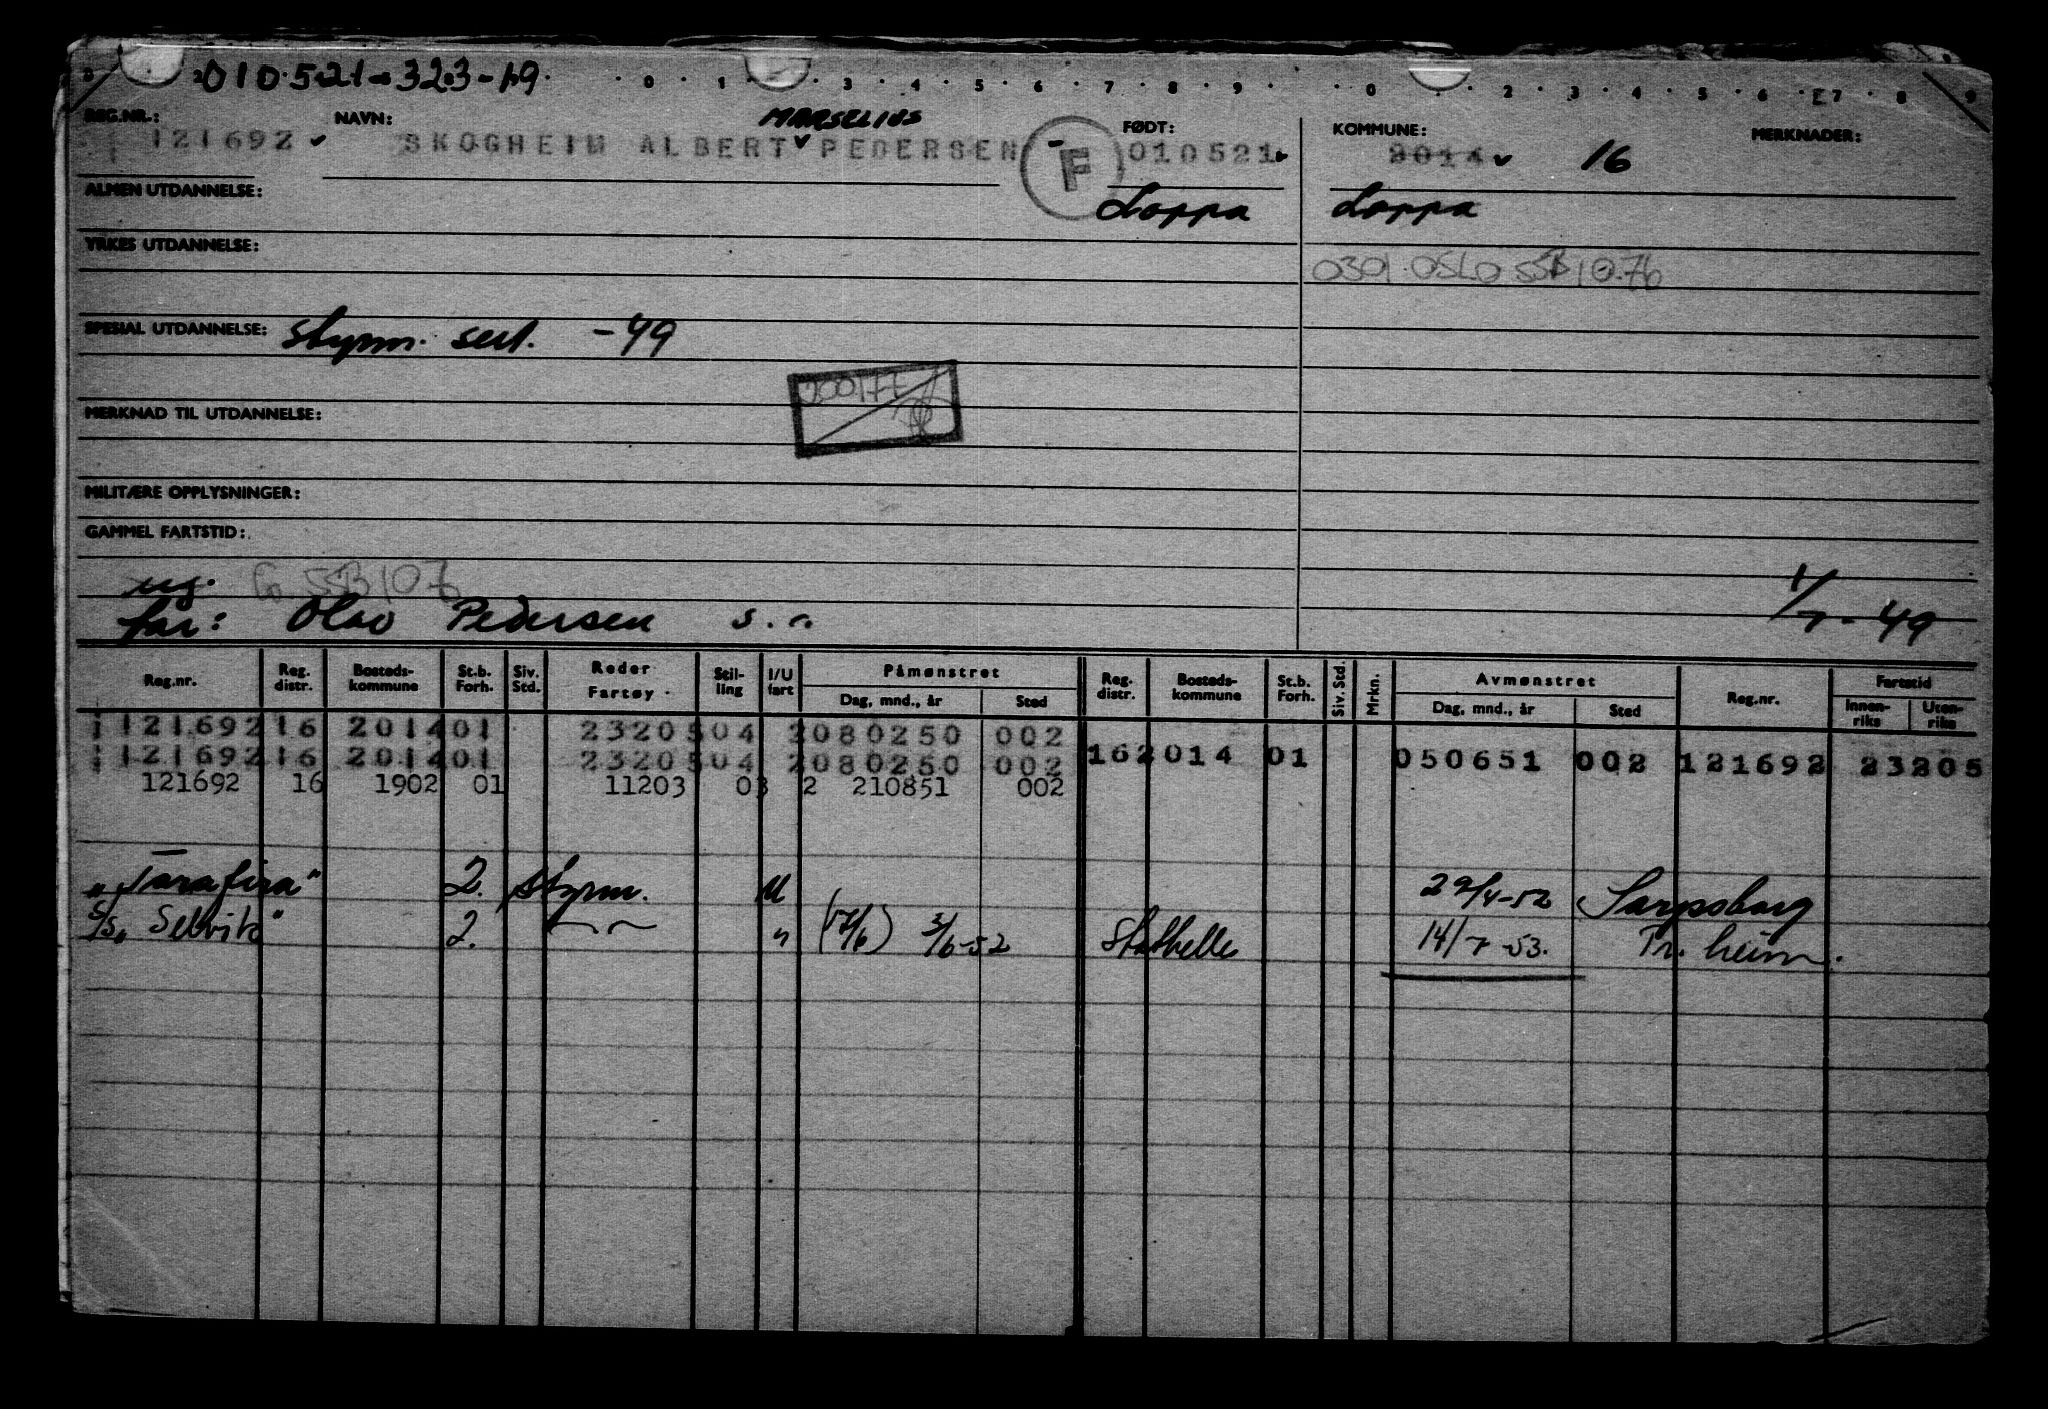 010521-323-19
0 1 3 4 5 6 7 8 9 0 2 3 4 5 6 7 8 9
REG.NR.: NAVN: MARSELIUS FØDT: KOMMUNE: MERKNADER:
121692 SKOGHEIM ALBERT PEDERSEN F 010521 2014 16
ALMEN UTDANNELSE: Loppa Loppa
YRKES UTDANNELSE:
0301 OSLO SSB 10.76
SPESIAL UTDANNELSE: styrm. sert. -49
MERKNAD TIL UTDANNELSE:
MILITÆRE OPPLYSNINGER:
GAMMEL FARTSTID:
ug. SSB 10 76
far: Olav Pedersen s. 1/7-49
Reg.nr. Reg. distr. Bosteds-kommune St.b. Forh. Siv. Std. Reder Fartøy Stil-ling I/U fart Påmønstret Dag, mnd., år Sted Reg. distr. Bosteds-kommune St.b. Forh. Siv. Std. Mrkn. Avmønstret Dag, mnd., år Sted Reg.nr. Fartstid Innen-riks Uten-riks
121692 16 2014 01 23205 04 2 080250 002
121692 16 2014 01 23205 04 2 080250 002 16 2014 01 050651 002 121692 23205
121692 16 1902 01 11203 03 2 210851 002
"Tarafira" 2. styrm. U 29/4-52 Sarpsborg
S/S "Selvik" 2. " (17/6) 3/6-52 Stathelle 14/7-53. Tr.heim.